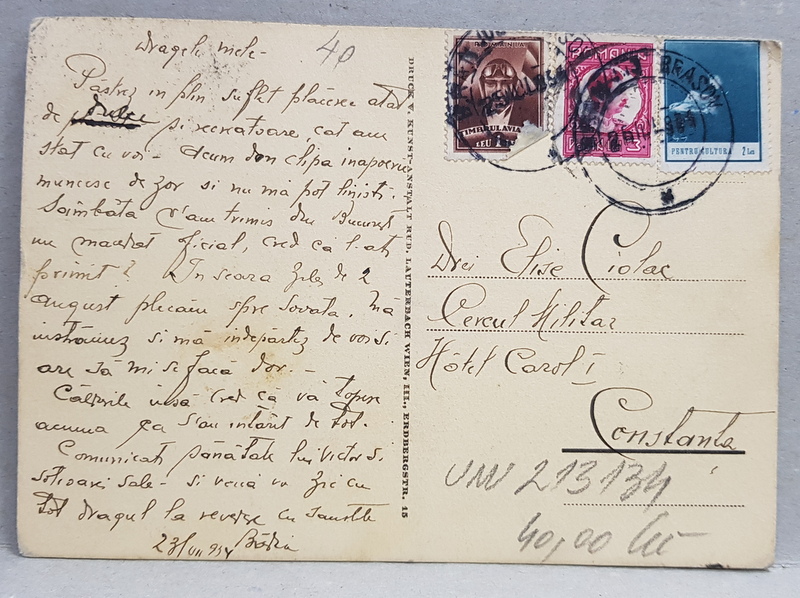 Dragele mele - 40
Păstrez in plin suflet plăcerea atât
de dulce și recreatoare, cât am
stat cu voi - Acum din clipa inapoerii
muncesc de zor si nu mă pot liniști.
Sâmbăta v'am trimis din București
un mandat oficial, cred că l-ați
primit? In seara zilei de 2
august plecăm spre Sovata, mă
instrăinez si mă indepărtez de voi si
are să mi se facă dor. -
Căldurile insă cred că vă topesc
acuma ca s'au intărit de tot.
Comunicati sănătate lui Victor si
soțioarei sale - si vouă vă zic cu
tot dragul la revedere cu sanatate
23/VII 934
DRUCK V. KUNST-ANSTALT RUD. LAUTERBACH WIEN, III., ERDBERGSTR. 15
ROMANIA
TIMBRUL AVIA
LEU
BRAȘOV
PENTRU CULTURA 2 Lei
Drei Elise Ciolac
Cercul Militar
Hôtel Carol I
Constanta
UNV 213134
40,00 lei